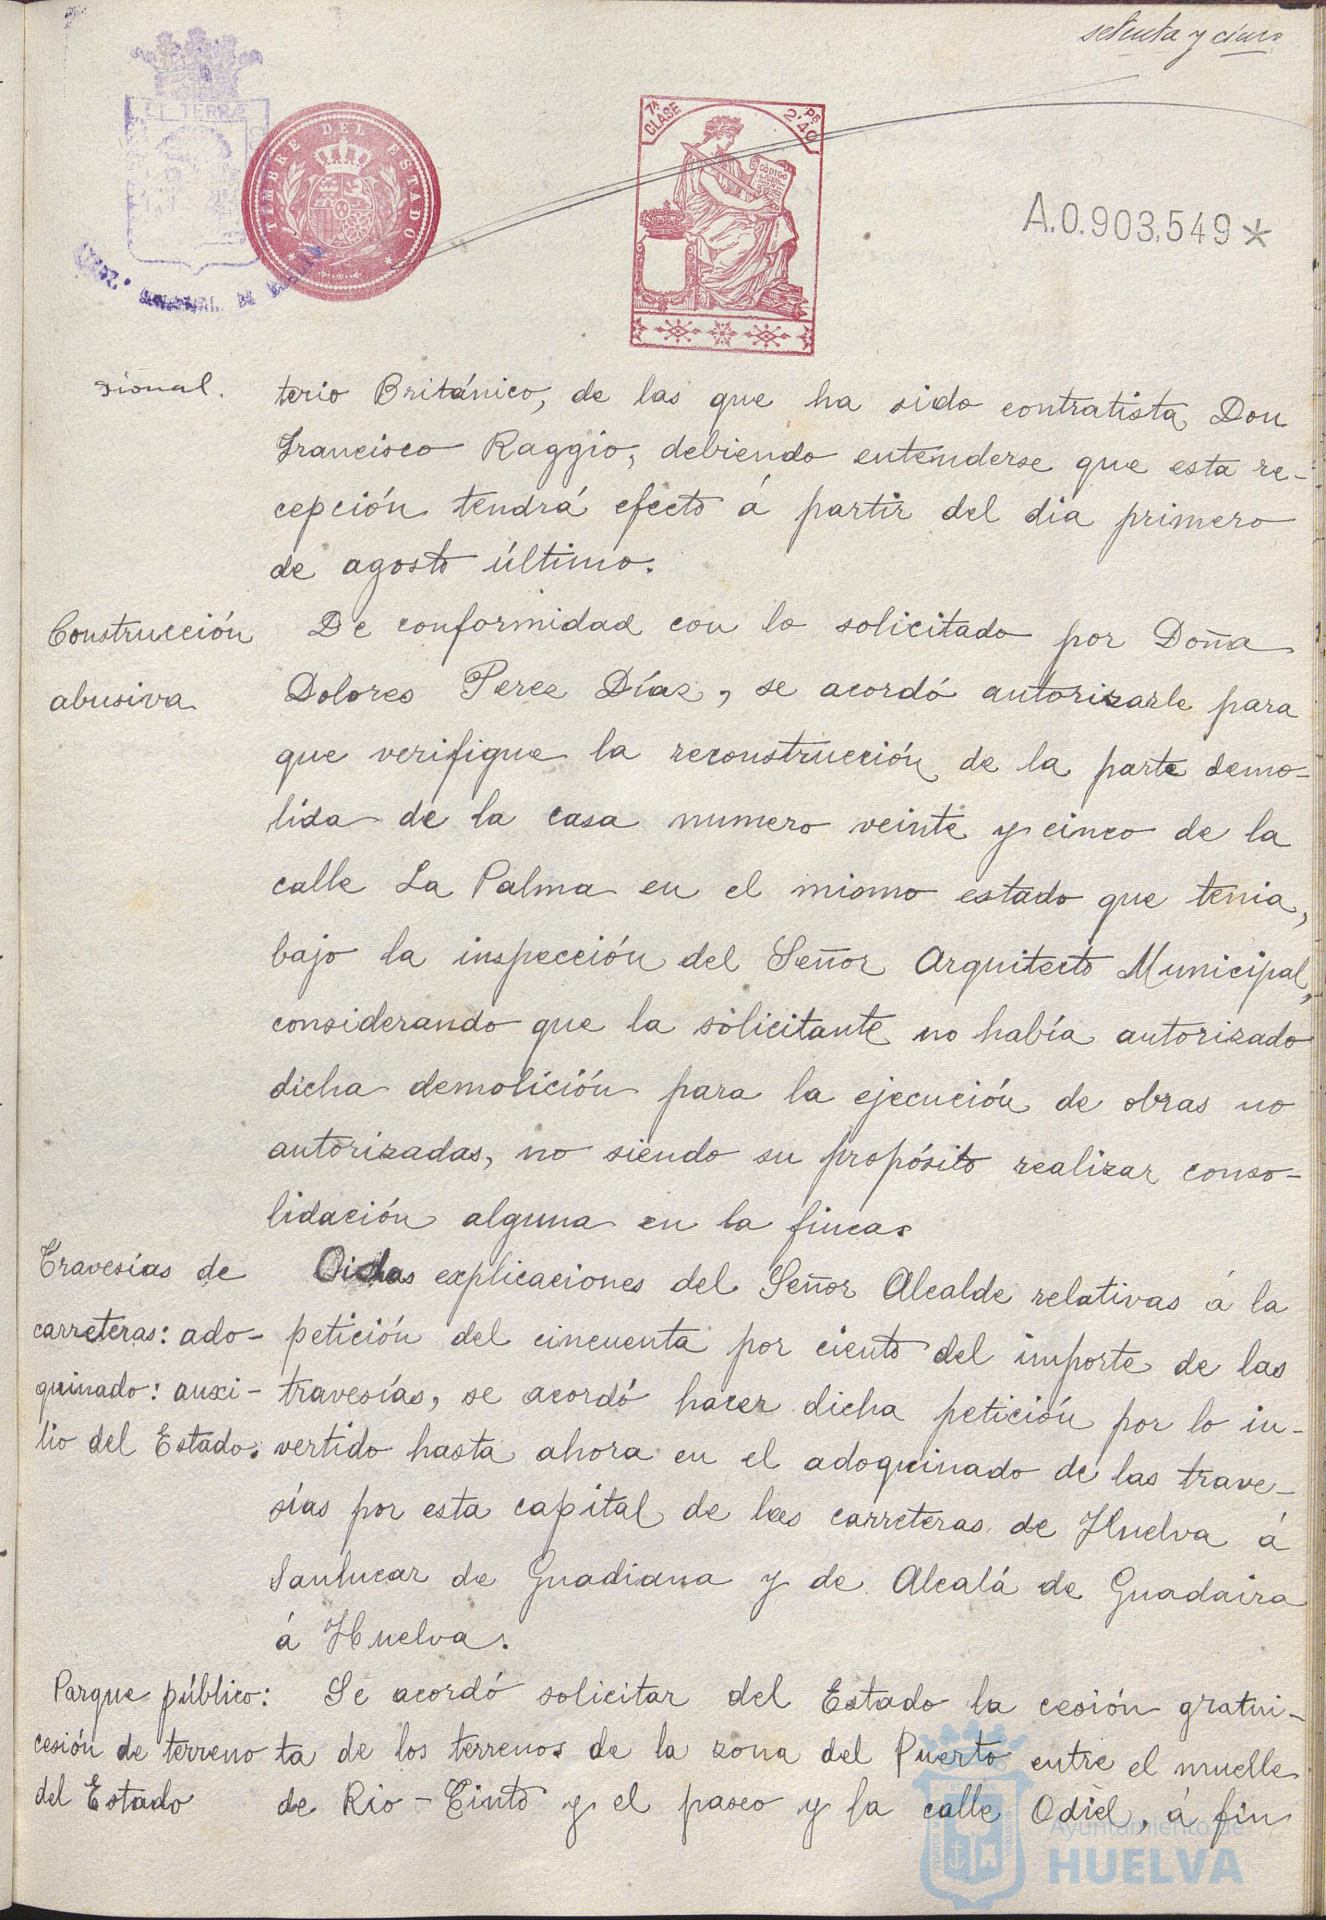 setenta y cinco
EL TERRÆ
TIMBRE DEL ESTADO
7ª CLASE
PS 2'40
CÓDIGO
A.0.903.549*
sional.
terio Británico, de las que ha sido contratista Don
Francisco Raggio, debiendo entenderse que esta re-
cepción tendrá efecto á partir del dia primero
de agosto último.
Construcción
abusiva
De conformidad con lo solicitado por Doña
Dolores Perez Díaz, se acordó autorizarle para
que verifique la reconstrucción de la parte demo-
lida de la casa numero veinte y cinco de la
calle La Palma en el mismo estado que tenia,
bajo la inspección del Señor Arquitecto Municipal,
considerando que la solicitante no había autorizado
dicha demolición para la ejecución de obras no
autorizadas, no siendo su propósito realizar conso-
lidación alguna en la finca.
Travesías de
carreteras: ado-
quinado: auxi-
lio del Estado.
Oidas explicaciones del Señor Alcalde relativas á la
petición del cincuenta por ciento del importe de las
travesías, se acordó hacer dicha petición por lo in-
vertido hasta ahora en el adoquinado de las trave-
sías por esta capital de las carreteras de Huelva á
Sanlucar de Guadiana y de Alcalá de Guadaira
á Huelva.
Parque público:
cesión de terreno
del Estado
Se acordó solicitar del Estado la cesión gratui-
ta de los terrenos de la zona del Puerto entre el muelle
de Rio-Tinto y el paseo y la calle Odiel, á fin
Ayuntamiento de
HUELVA